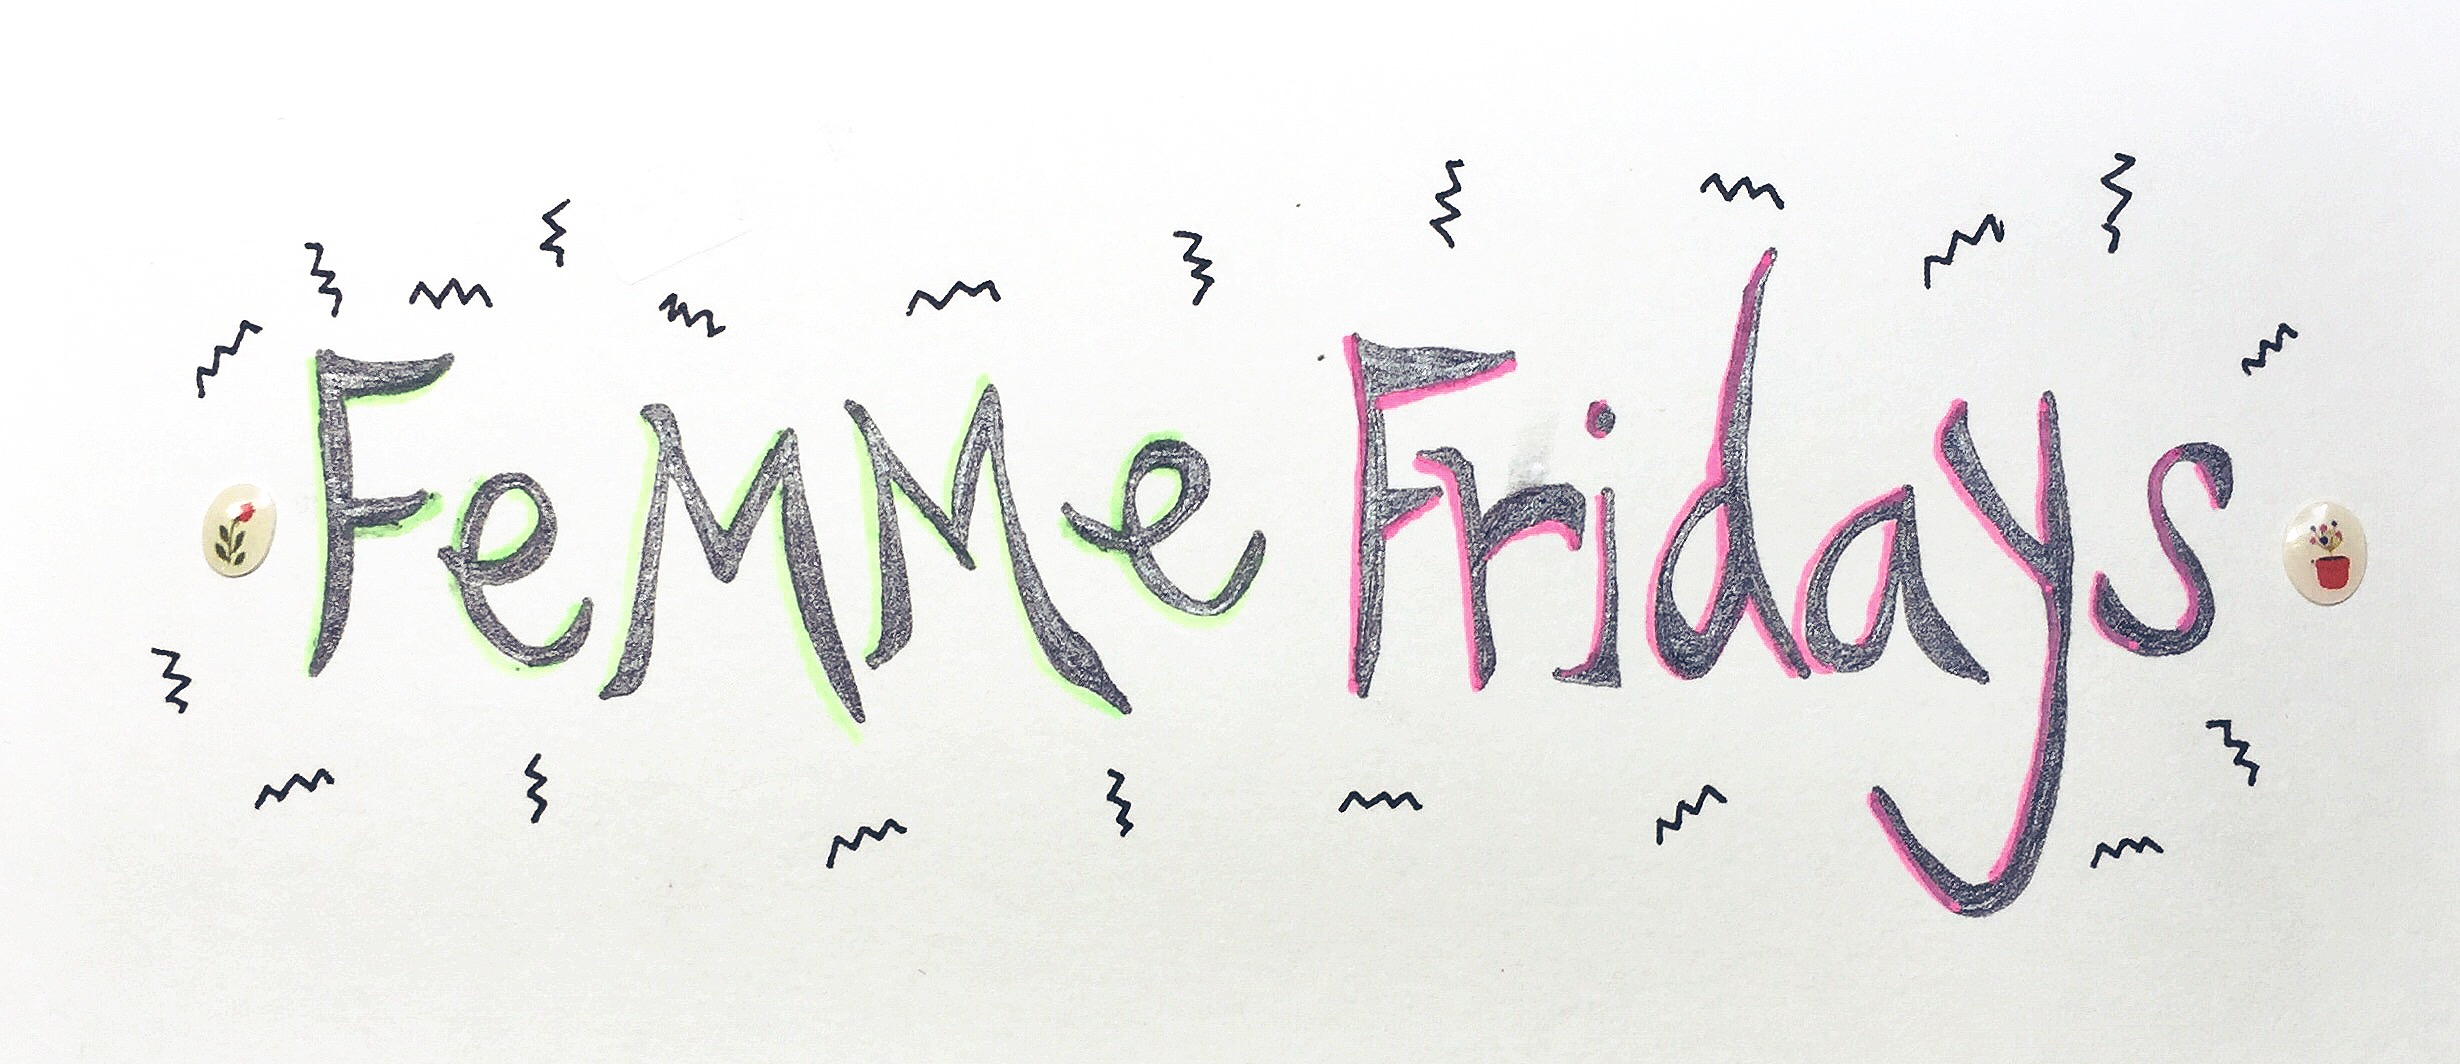 FeMMe Fridays